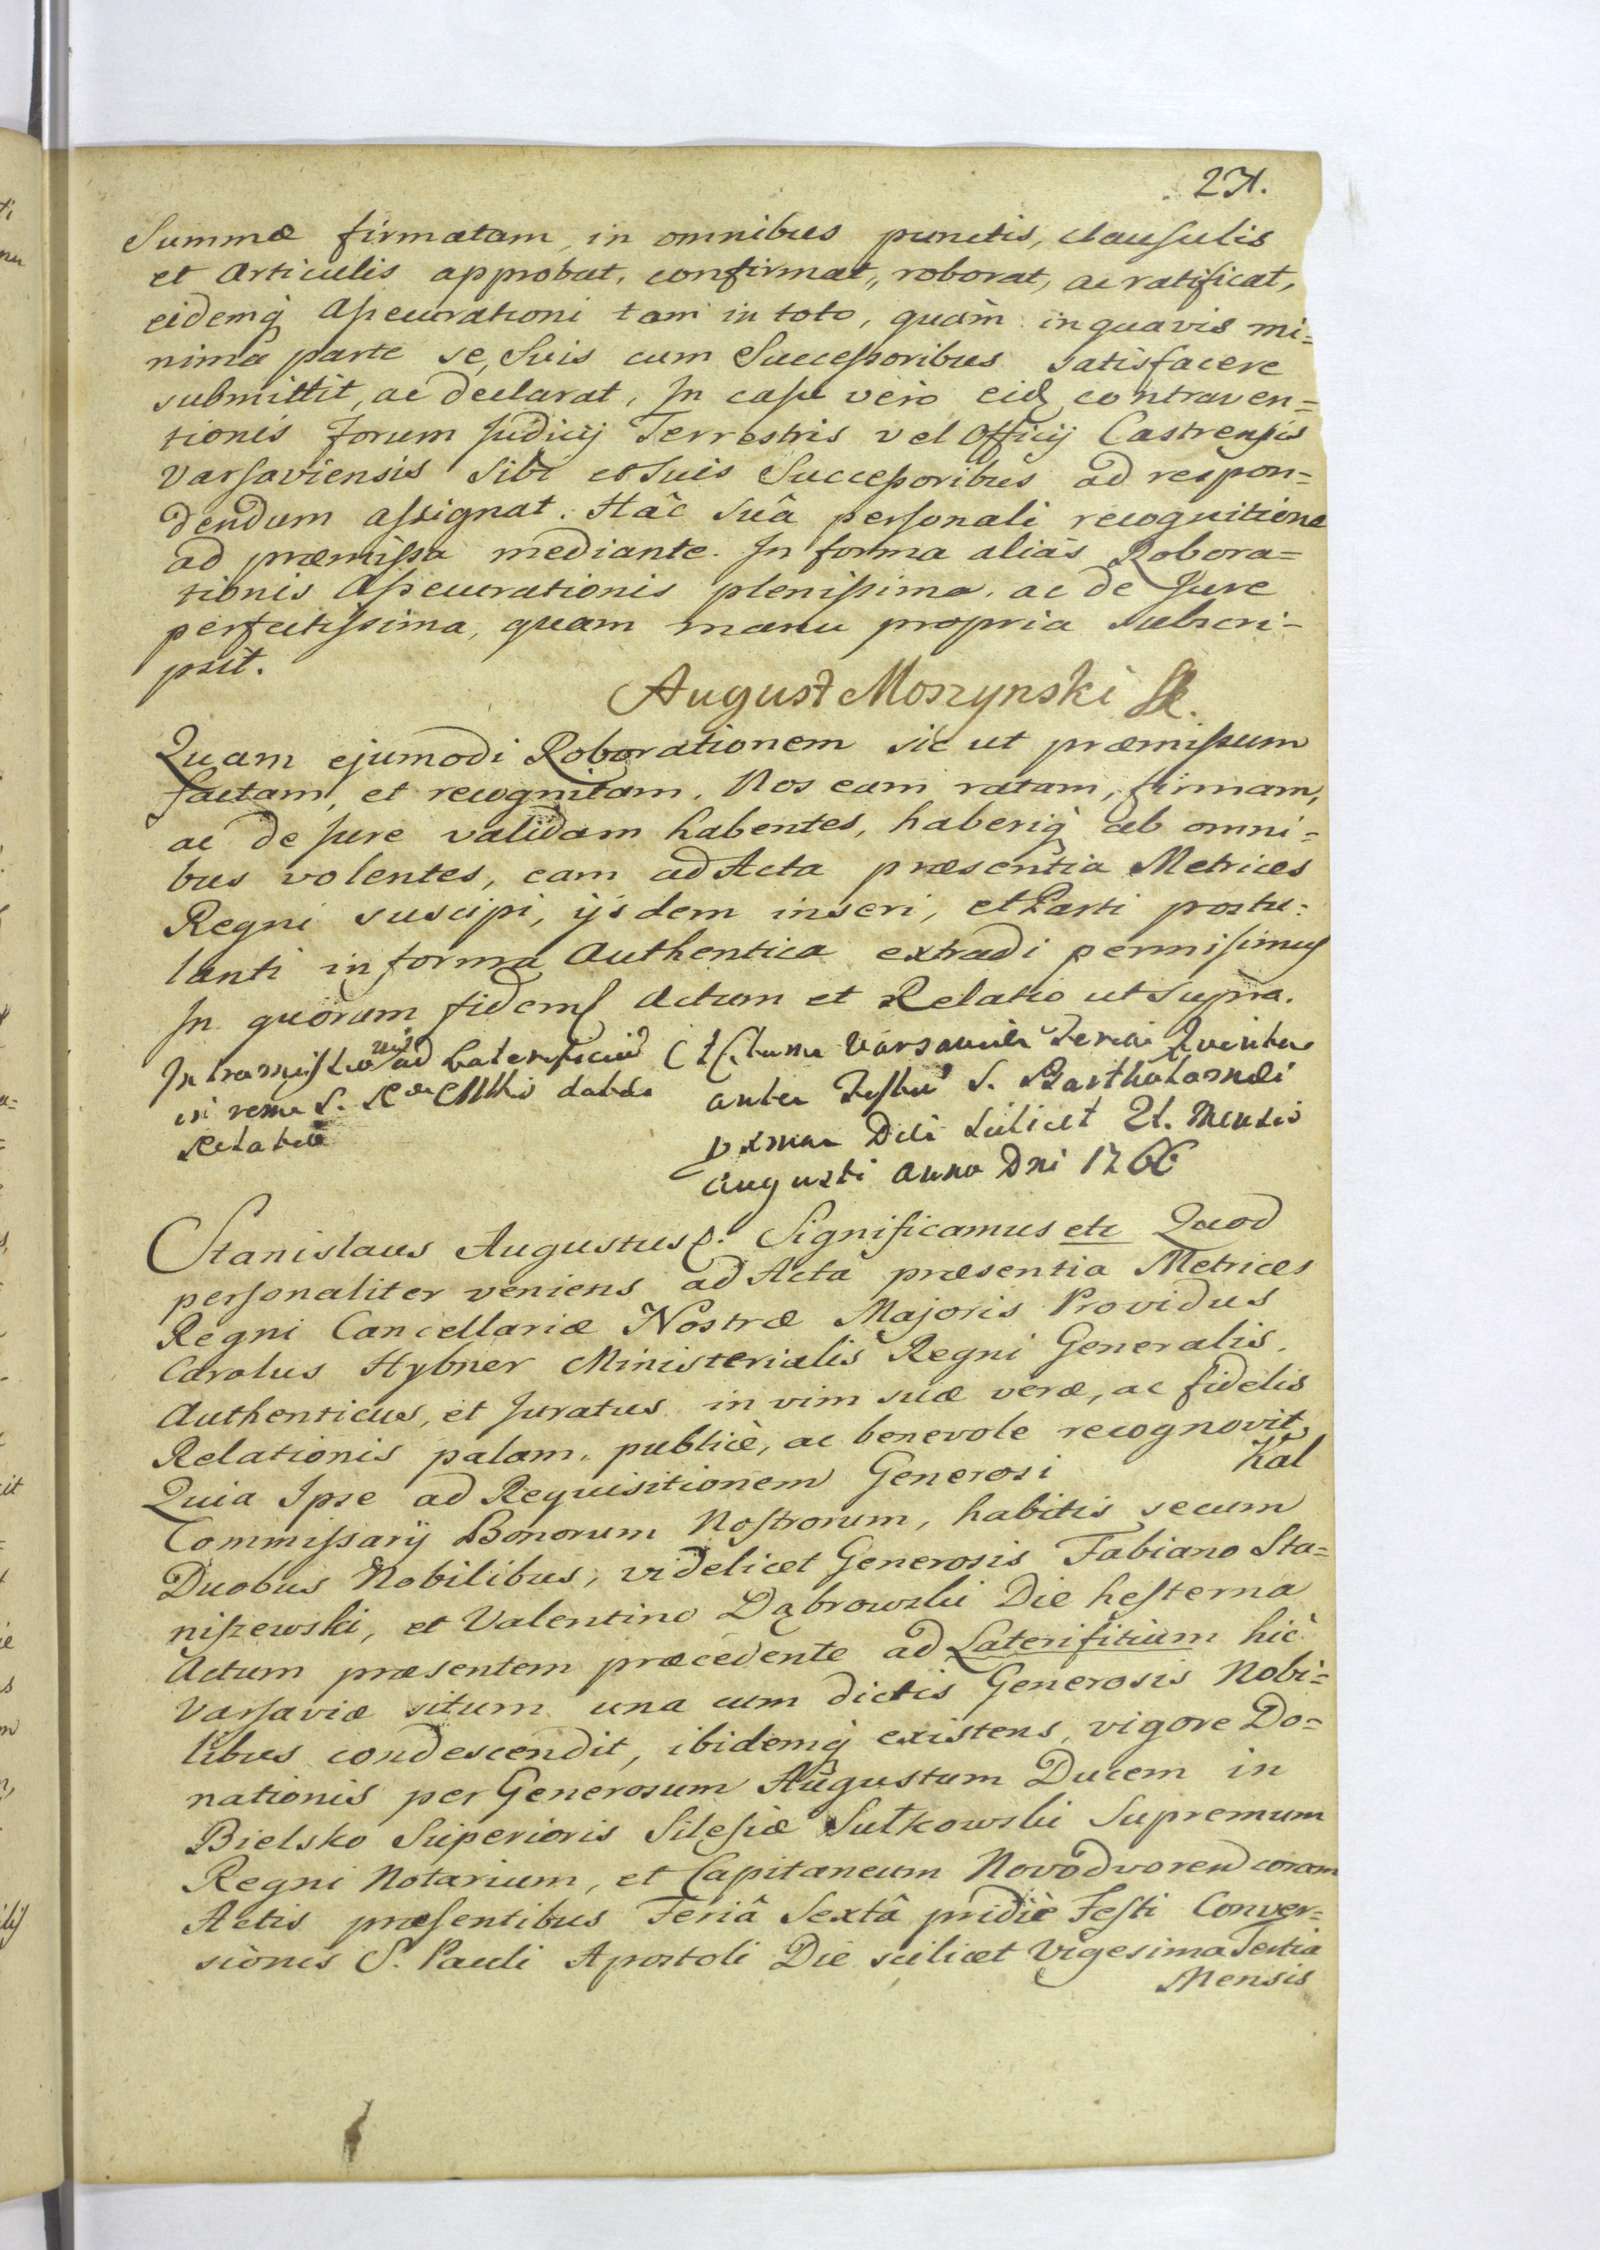 271.
Summæ firmatam, in omnibus punctis, clausulis
et Articulis approbat, confirmat, roborat, ac ratificat,
eidemq́ Assecurationi tam in toto, quàm in quavis mi=
nima parte se, Suis cum Successoribus satisfacere
submittit, ac declarat, In casu vero eidę contraven=
tionis forum Judicij Terrestris vel Officij Castrensis
Varsaviensis Sibi et Suis Successoribus ad respon=
dendum assignat. Hâc suâ personali recognitione
ad præmissa mediante. In forma aliàs Robora=
tionis Assecurationis plenissima, ac de Jure
perfectissima, quam manu propria subscri-
psit.
August Moszynski
Quam ejumodi Roborationem sic ut præmissum
factam, et recognitam, Nos eam ratam, firmam,
ac de jure validam habentes, haberiq́ ab omni=
bus volentes, eam ad Acta præsentia Metrices
Regni suscipi, ijsdem inseri, et Parti postu=
lanti in forma Authentica extradi permisimus
In quorum fidem Actum et Relatio ut supra.
Intromissionis ad Laterificiũ
in rem S. R. Mttis dabdæ
Relatio
Actum Varsaviæ Feria Quinta
ante Festũ S. Bartholomæi
proxima Die scilicet 21. Mensis
Augusti Anno Dni 1766
Stanislaus Augustus. Significamus etc Quod
personaliter veniens ad Acta præsentia Metrices
Regni Cancellariæ Nostræ Majoris Providus
Carolus Hybner Ministerialis Regni Generalis,
Authenticus, et Juratus in vim suæ veræ, ac fidelis
Relationis palam, publicè, ac benevole recognovit,
Quia Ipse ad Requisitionem Generosi Kal
Commissarij Bonorum Nostrorum, habitis secum
Duobus Nobilibus, videlicet Generosis Fabiano Sta=
niszewski, et Valentino Dąbrowski Die hesterna
Actum præsentem præcedente ad Laterifitium hic
Varsaviæ situm una cum dictis Generosis Nobi=
libus condescendit, ibidemq́ existens, vigore Do=
nationis per Generosum Augustum Ducem in
Bielsko Superioris Silesiæ Sułkowski Supremum
Regni Notarium, et Capitaneum Novodvoren coram
Actis præsentibus Feriâ Sextâ pridiè Festi Conver=
sionis S. Pauli Apostoli Die scilicet Vigesima Tertia
Mensis